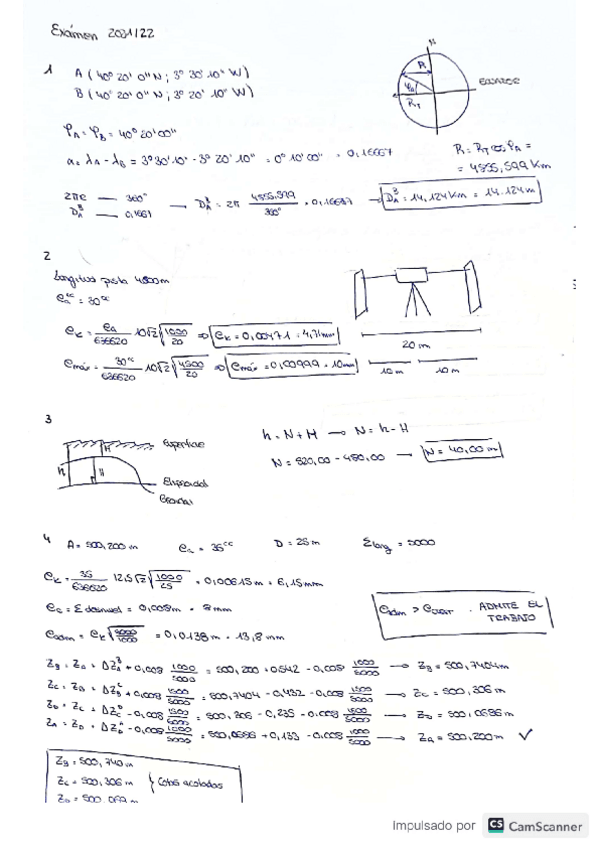 Exámen 2021/22
1 A (40° 20' 0" N; 3° 30' 10" W)
B (40° 20' 0" N; 3° 20' 10" W)
N
R
φA
RT
ECUADOR
φA = φB = 40° 20' 00"
a = λA - λB = 3° 30' 10" - 3° 20' 10" = 0° 10' 00" = 0,16667
R = RT cos φA =
= 4855,599 Km
2πR — 360°
D_A^B — 0,1667
→ D_A^B = 2π 4855,599/360° · 0,16667 → D_A^B = 14,124 Km = 14.124m
2
Longitud pista 4500m
e_a^cc = 30cc
e_K = e_a/636620 10√2 √(1000/20) ⇒ e_K = 0,00471 = 4,71mm
e_máx = 30cc/636620 10√2 √(4500/20) ⇒ e_máx = 0,00999 = 10mm
20 m
10 m 10 m
3
H Superficie
h H
Elipsoide
Geoide
h = N + H → N = h - H
N = 520,00 - 480,00 → N = 40,00 m
4 A = 500,200 m e_a = 35cc D = 25 m Σlong = 5000
e_K = 35/636620 12,5√2 √(1000/25) = 0,00615 m = 6,15 mm
e_c = Σ desnivel = 0,008m = 8 mm
e_adm = e_K √(5000/1000) = 0,0138 m = 13,8 mm
e_adm > e_cierr . ADMITE EL
TRABAJO
Z_B = Z_A + ΔZ_A^B + 0,008 1000/5000 = 500,200 + 0,542 - 0,008 1000/5000 → Z_B = 500,7404 m
Z_C = Z_B + ΔZ_B^C + 0,008 1500/5000 = 500,7404 - 0,432 - 0,008 1500/5000 → Z_C = 500,306 m
Z_D = Z_C + ΔZ_C^D - 0,008 1500/5000 = 500,306 - 0,235 - 0.008 1500/5000 → Z_D = 500,0686 m
Z_A = Z_D + ΔZ_D^A - 0,008 1000/5000 = 500,0686 + 0,133 - 0.008 1000/5000 → Z_A = 500,200 m ✓
Z_B = 500,740 m
Z_C = 500,306 m } Cotas
Z_D = 500.069 m
Impulsado por CS CamScanner